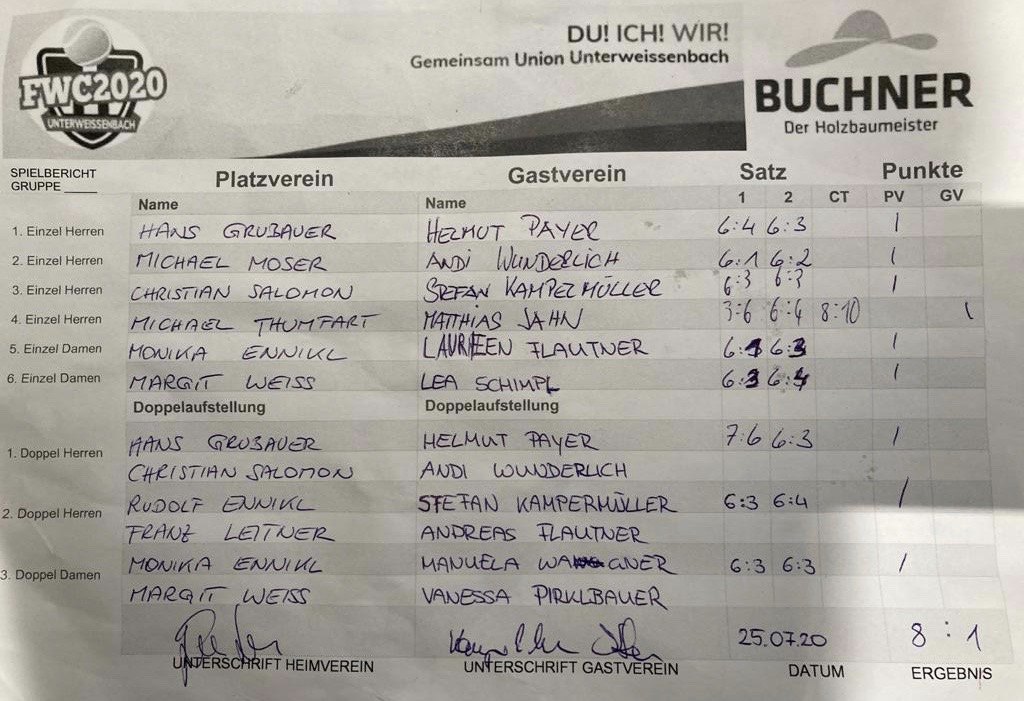 DU! ICH! WIR!
Gemeinsam Union Unterweissenbach
FWC2020
UNTERWEISSENBACH
BUCHNER
Der Holzbaumeister
SPIELBERICHT
GRUPPE ____
Platzverein Gastverein Satz Punkte
Name Name 1 2 CT PV GV
1. Einzel Herren HANS GRUBAUER HELMUT PAYER 6:4 6:3 1
2. Einzel Herren MICHAEL MOSER ANDI WUNDERLICH 6:1 6:2 1
3. Einzel Herren CHRISTIAN SALOMON STEFAN KAMPERMÜLLER 6:3 6:3 1
4. Einzel Herren MICHAEL THUMFART MATTHIAS JAHN 3:6 6:4 8:10 1
5. Einzel Damen MONIKA ENNIKL LAUREEN FLAUTNER 6:1 6:3 1
6. Einzel Damen MARGIT WEISS LEA SCHIMPL 6:3 6:4 1
Doppelaufstellung Doppelaufstellung
1. Doppel Herren HANS GRUBAUER HELMUT PAYER 7:6 6:3 1
CHRISTIAN SALOMON ANDI WUNDERLICH
2. Doppel Herren RUDOLF ENNIKL STEFAN KAMPERMÜLLER 6:3 6:4 1
FRANZ LEITNER ANDREAS FLAUTNER
3. Doppel Damen MONIKA ENNIKL MANUELA WAGNER 6:3 6:3 1
MARGIT WEISS VANESSA PIRKLBAUER
25.07.20 8:1
UNTERSCHRIFT HEIMVEREIN UNTERSCHRIFT GASTVEREIN DATUM ERGEBNIS